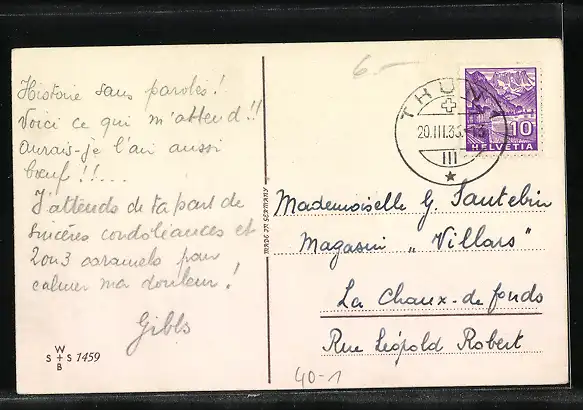 Histoire sans paroles!
Voici ce qui m'attend!!
Aurais-je l'air aussi
bœuf!!...
J'attends de ta part de
sincères condoléances et
2 ou 3 caramels pour
calmer ma douleur!
Gibbs
W
S + S 1459
B
MADE IN GERMANY
6.-
THUN 1
20.III.35.-
III
10
HELVETIA
Mademoiselle G. Santebin
Magasin „Villars"
La Chaux-de-fonds
Rue Léopold Robert
40-1